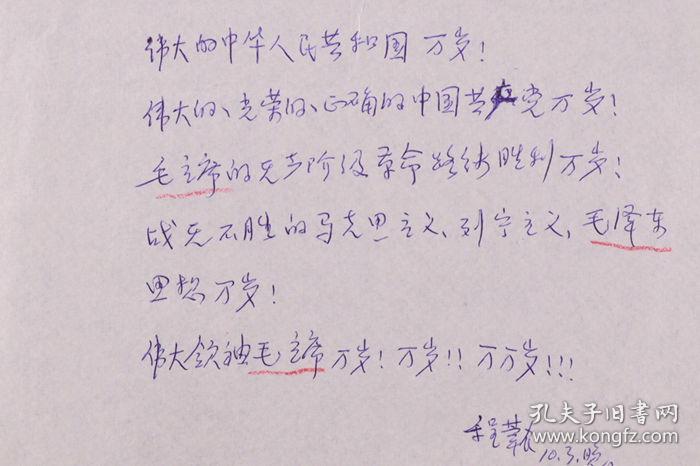 伟大的中华人民共和国万岁!
伟大的、光荣的、正确的中国共产党万岁!
毛主席的无产阶级革命路线胜利万岁!
战无不胜的马克思主义、列宁主义、毛泽东
思想万岁!
伟大领袖毛主席万岁!万岁!!万万岁!!!
程
10.3.晚
孔夫子旧书网
www.kongfz.com